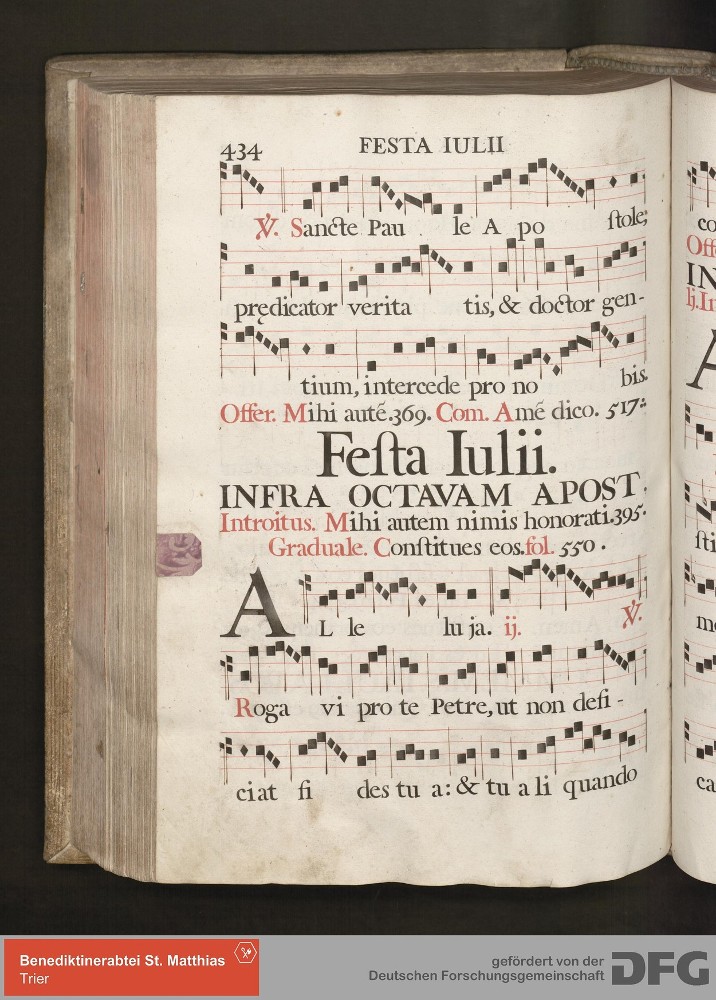 434 FESTA IULII
℣. Sancte Pau le A po stole;
prędicator verita tis, & doctor gen-
tium, intercede pro no bis.
Offer. Mihi autē.369. Com. Amē dico. 517:
Festa Iulii.
INFRA OCTAVAM APOST.
Introitus. Mihi autem nimis honorati.395.
Graduale. Constitues eos.fol. 550.
AL le lu ja. ij. ℣.
Roga vi pro te Petre, ut non defi-
ciat fi des tu a: & tu a li quando
co
Off
IN
A
sti
ca
Benediktinerabtei St. Matthias
Trier
gefördert von der
Deutschen Forschungsgemeinschaft
DFG